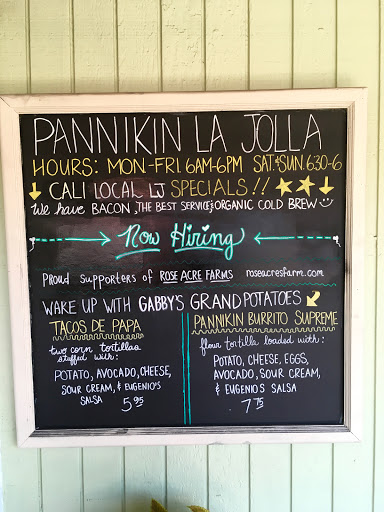 PANNIKIN LA JOLLA
HOURS: MON-FRI 6AM-6PM SAT&SUN 6:30-6
CALI LOCAL LJ SPECIALS!!
We have BACON, THE BEST SERVICE, & ORGANIC COLD BREW
Now Hiring
Proud supporters of ROSE ACRE FARMS roseacresfarm.com
WAKE UP WITH GABBY'S GRAND POTATOES
TACOS DE PAPA
two corn tortillas
stuffed with:
POTATO, AVOCADO, CHEESE,
SOUR CREAM, & EUGENIO'S
SALSA
5.95
PANNIKIN BURRITO SUPREME
flour tortilla loaded with:
POTATO, CHEESE, EGGS,
AVOCADO, SOUR CREAM,
& EUGENIO'S SALSA
7.75